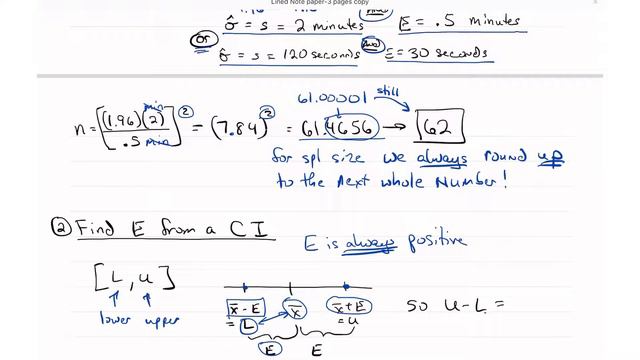 Lined Note paper-3 pages copy
1.96
σ̂ = s = 2 minutes and E = .5 minutes
or
σ̂ = s = 120 seconds and E = 30 seconds
61.00001 still
n = [(1.96)(2) min / .5 min]² = (7.84)² = 61.4656 → 62
for spl size we always round up
to the next whole Number!
② Find E from a CI
E is always positive
[L, u]
lower upper
x̄ - E x̄ x̄ + E
= L = u
E E
so u - L =